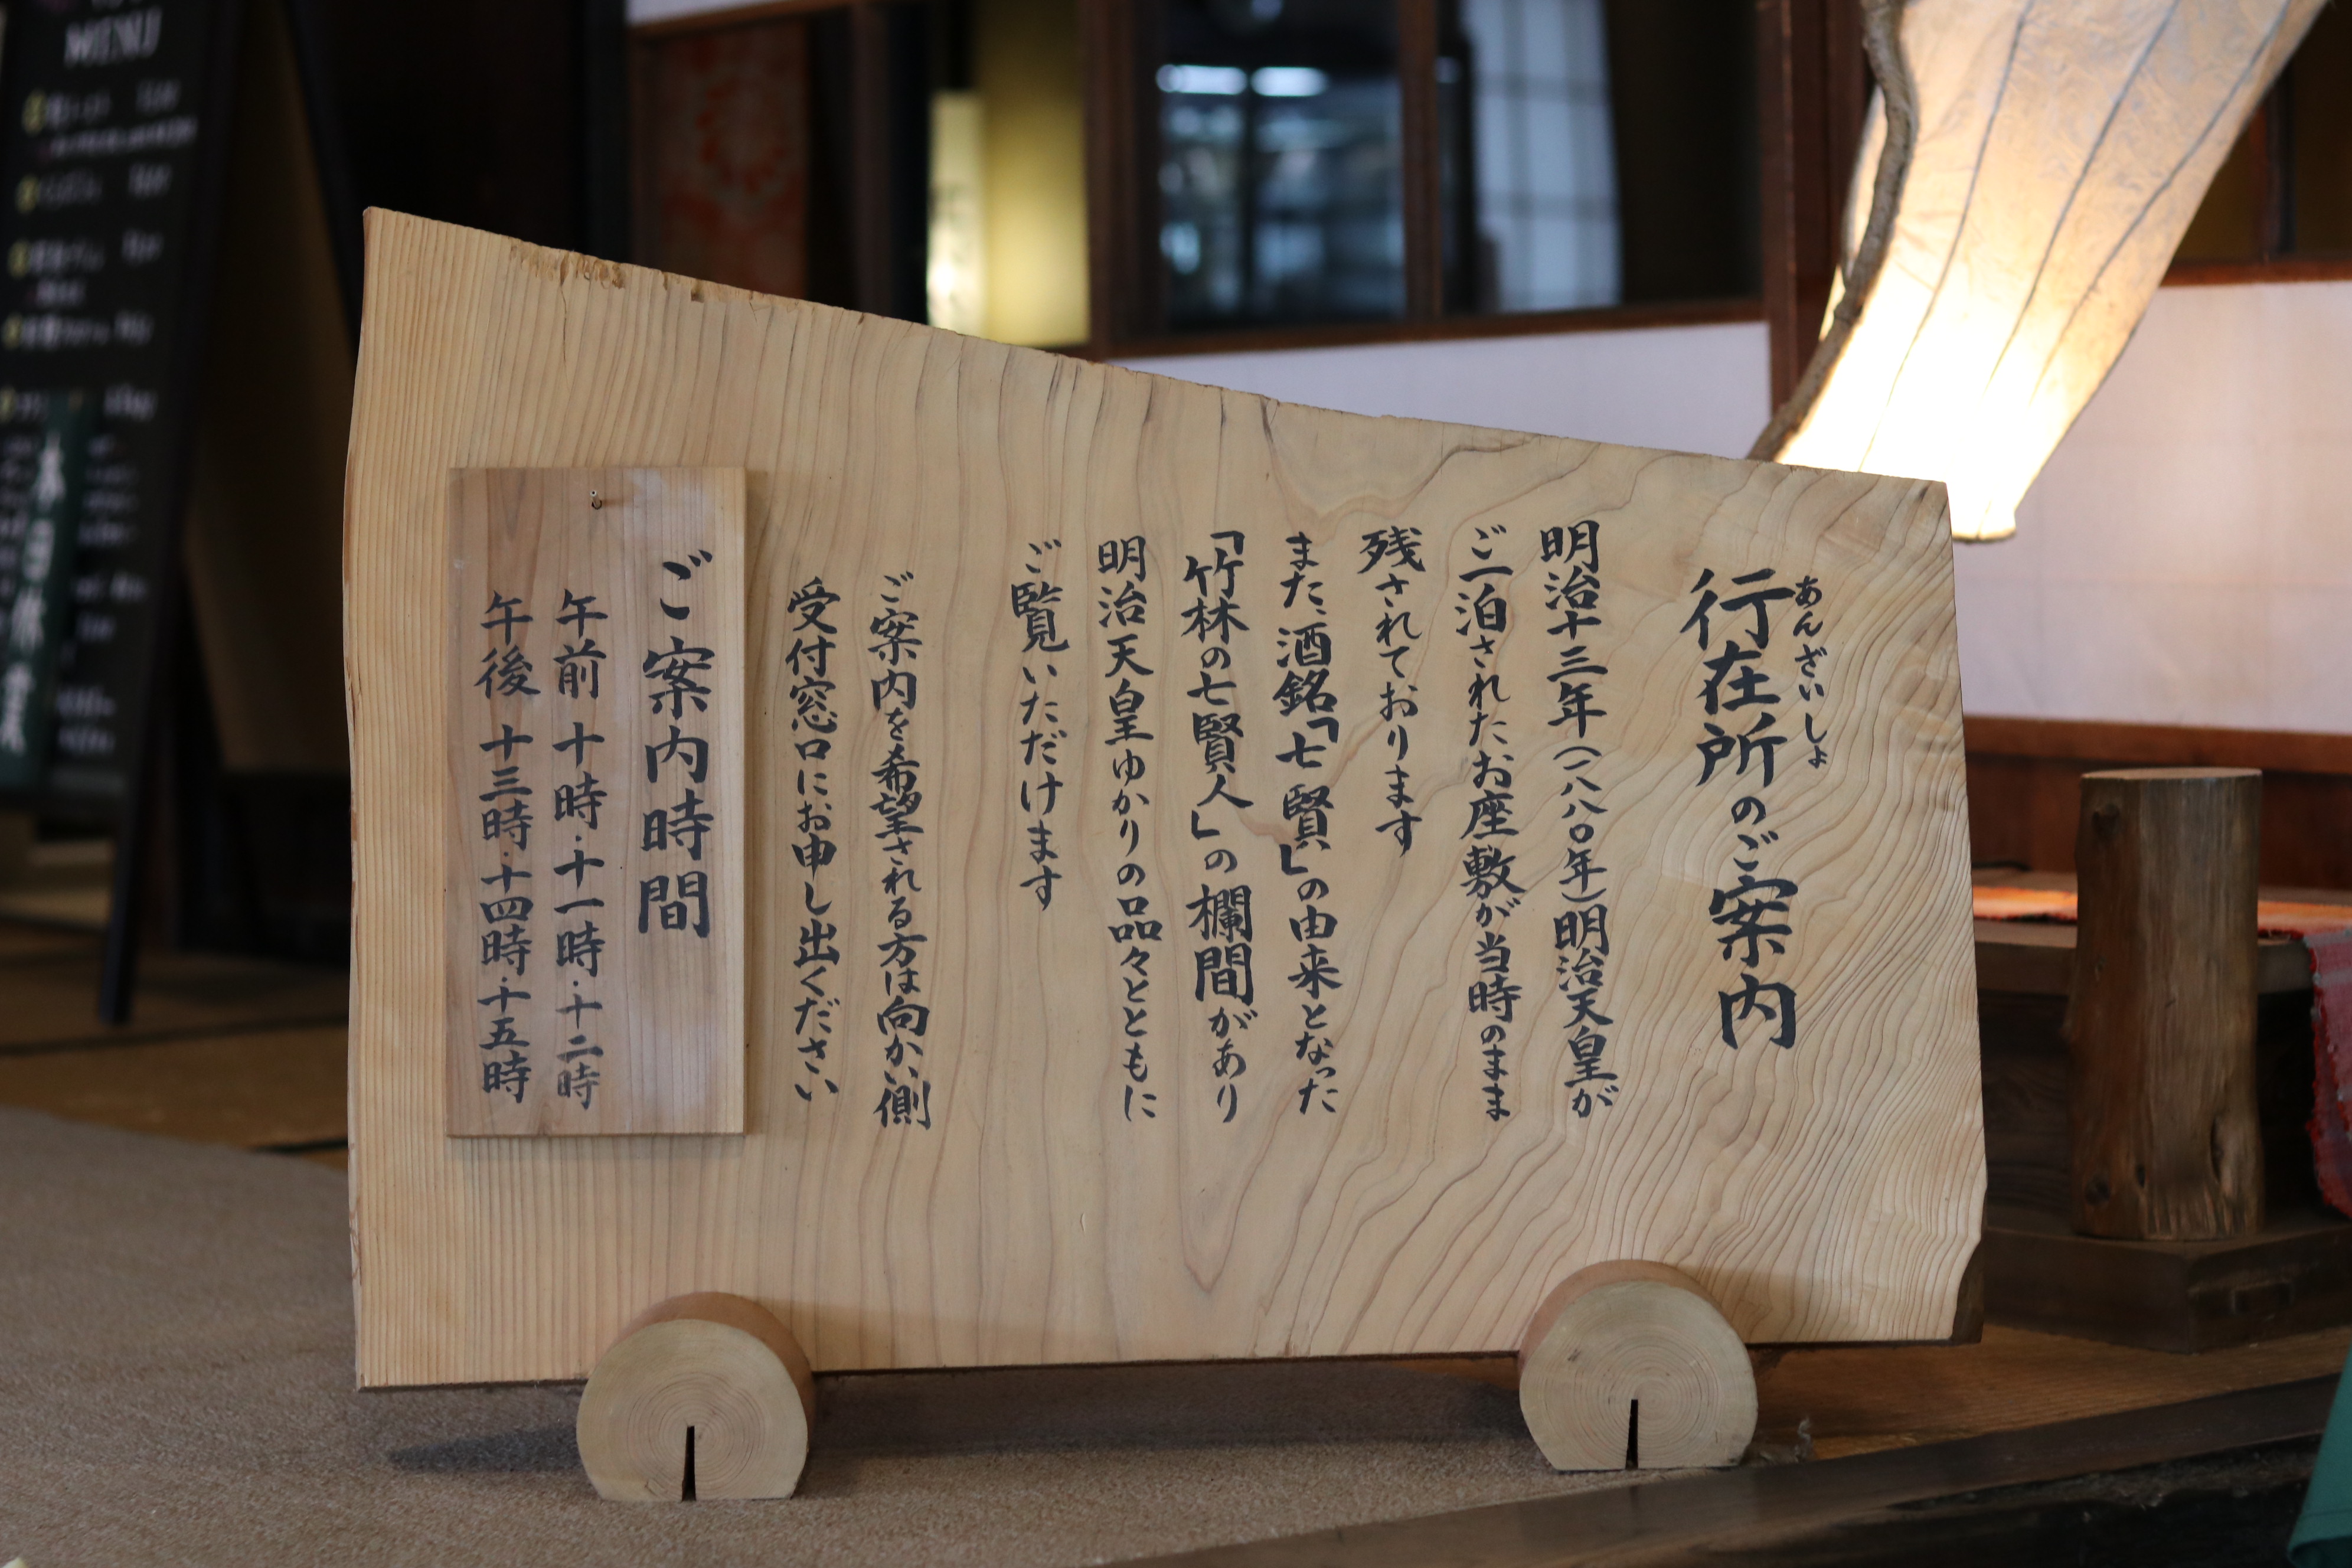 行在所のご案内
あんざいしょ
明治十三年(一八八〇年)明治天皇が
ご一泊されたお座敷が当時のまま
残されております
また、酒銘「七賢」の由来となった
「竹林の七賢人」の欄間があり
明治天皇ゆかりの品々とともに
ご覧いただけます
ご案内を希望される方は向かい側
受付窓口にお申し出ください
ご案内時間
午前 十時・十一時・十二時
午後 十三時・十四時・十五時
MENU